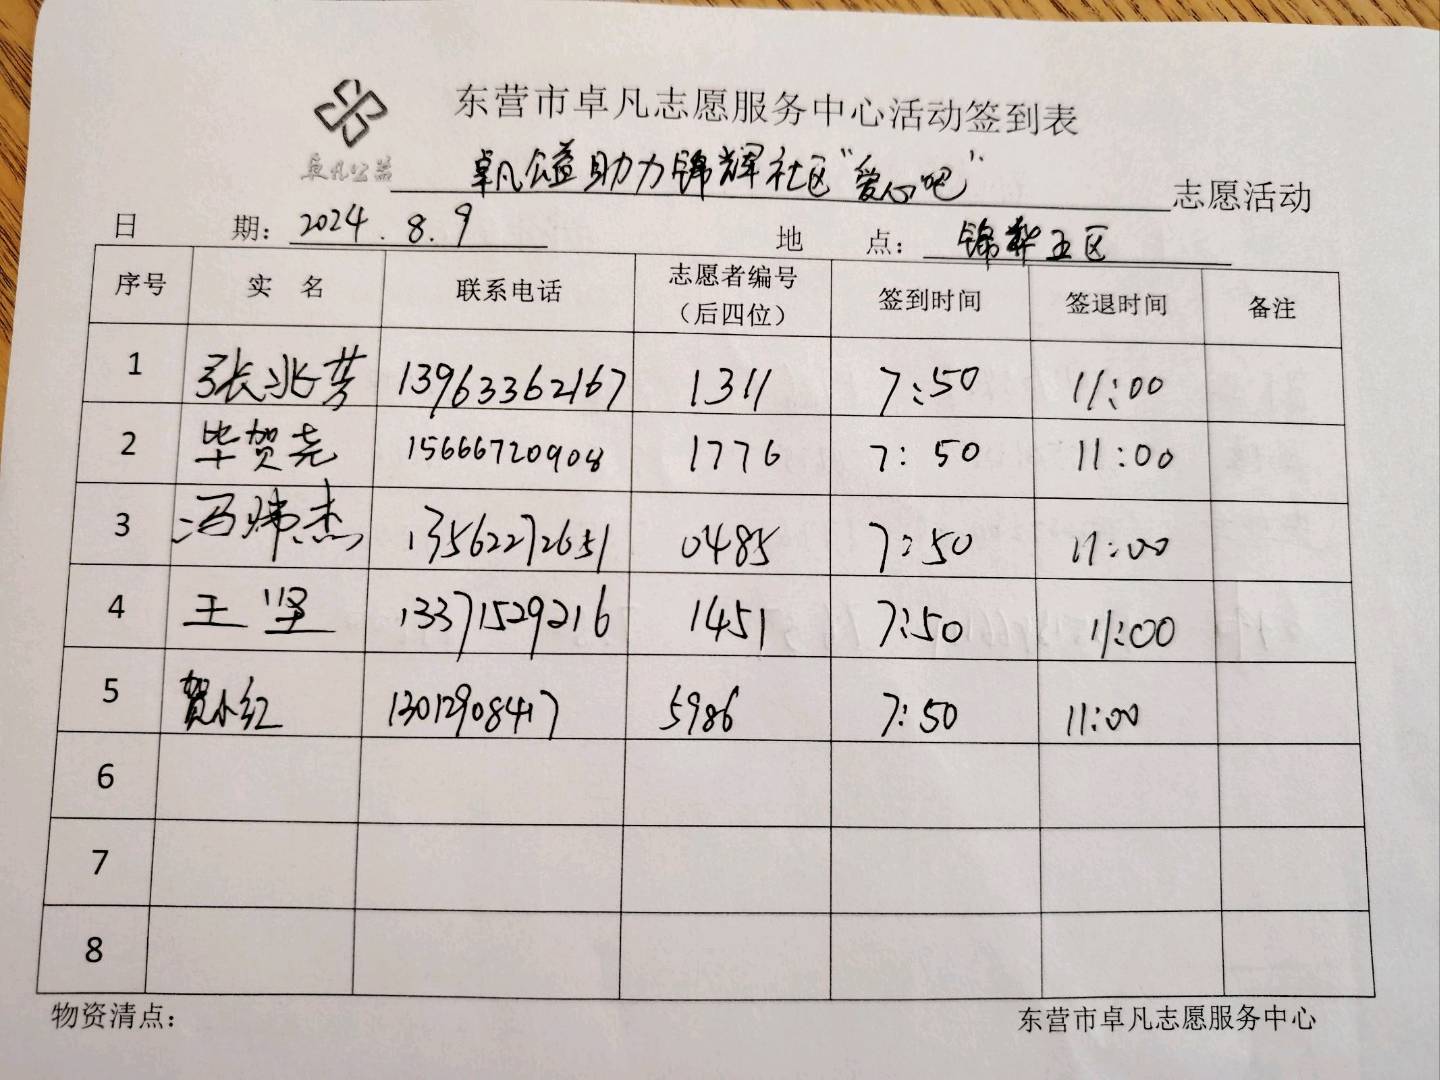 东营市卓凡志愿服务中心活动签到表
卓凡公益
卓凡公益助力锦辉社区“爱心吧”志愿活动
日 期：2024.8.9 地 点：锦华五区
序号 实 名 联系电话 志愿者编号（后四位） 签到时间 签退时间 备注
1 张兆芳 13963362167 1311 7:50 11:00
2 毕贺尧 15666720908 1776 7:50 11:00
3 冯炜杰 13562272651 0485 7:50 11:00
4 王坚 13371529216 1451 7:50 11:00
5 贺小红 13012908417 5986 7:50 11:00
6
7
8
物资清点： 东营市卓凡志愿服务中心